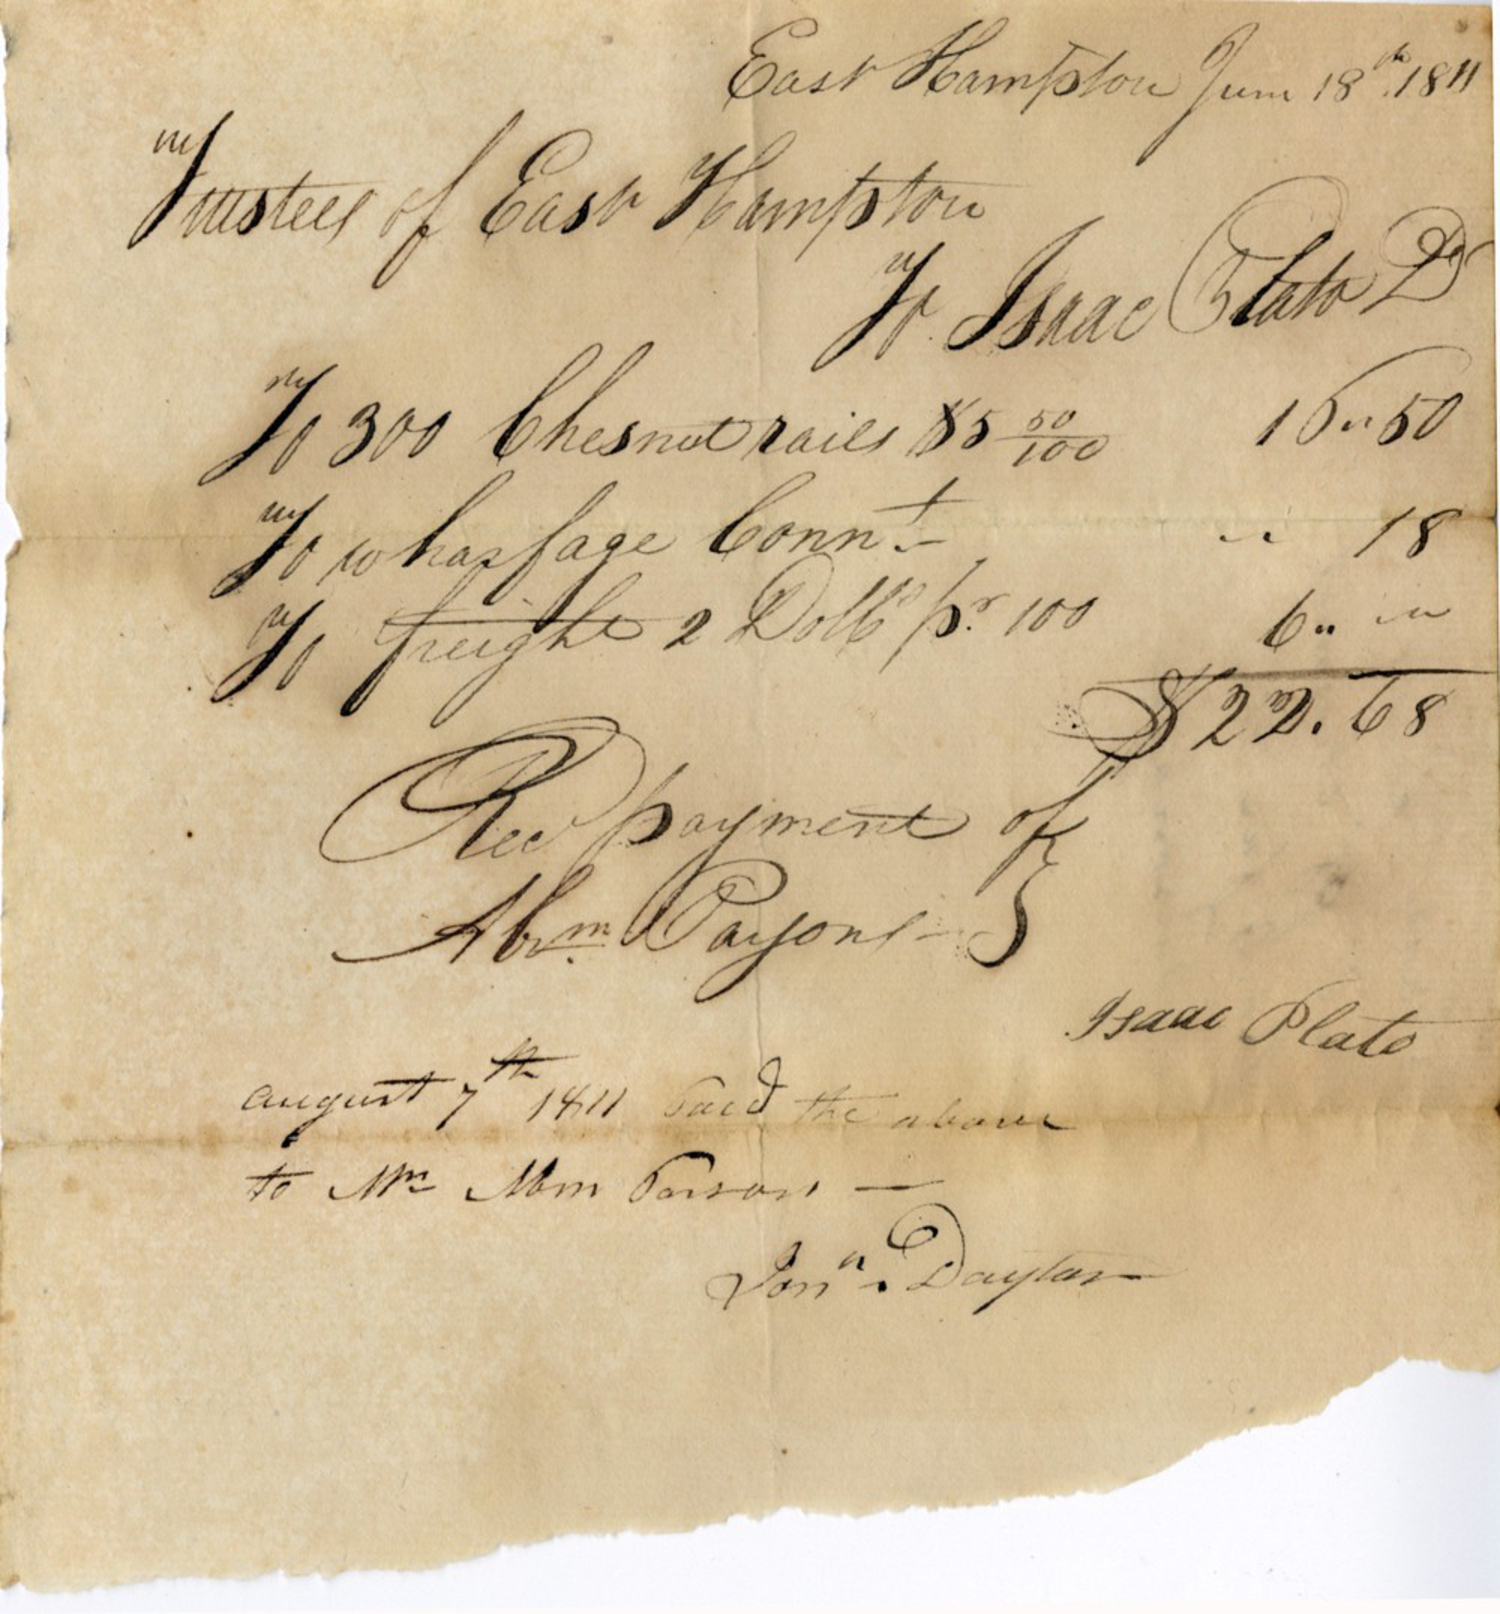 East Hampton June 18th 1811
Trustees of East Hampton
To Isaac Plato Dr
To 300 Chesnut rails $5 50/100 16"50
To wharfage Connt - " 18
To freight 2 Dolls pr 100 6" "
$22.68
Recd payment of
Abrm Parsons -
Isaac Plato
august 7th 1811 Paid the above
to Mr Abm Parsons —
Jonn. Dayton